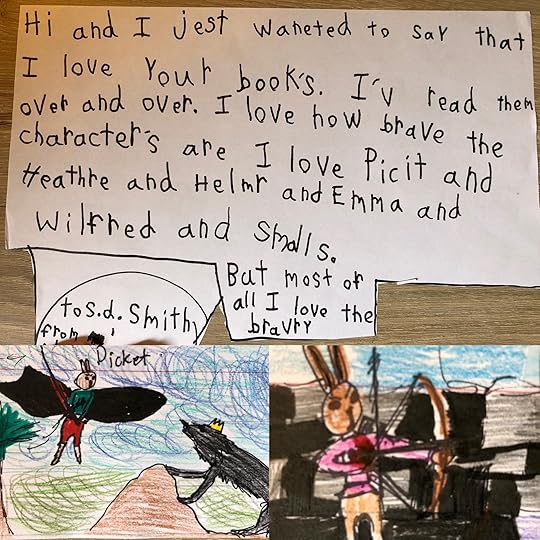 Hi and I jest waneted to say that
I love Your book's. I'v read them
over and over. I love how brave the
character's are I love Picit and
Heathre and Helmr and Emma and
Wilfred and Smalls.
But most of
all I love the
bravry
to S.d. Smith
from
Picket